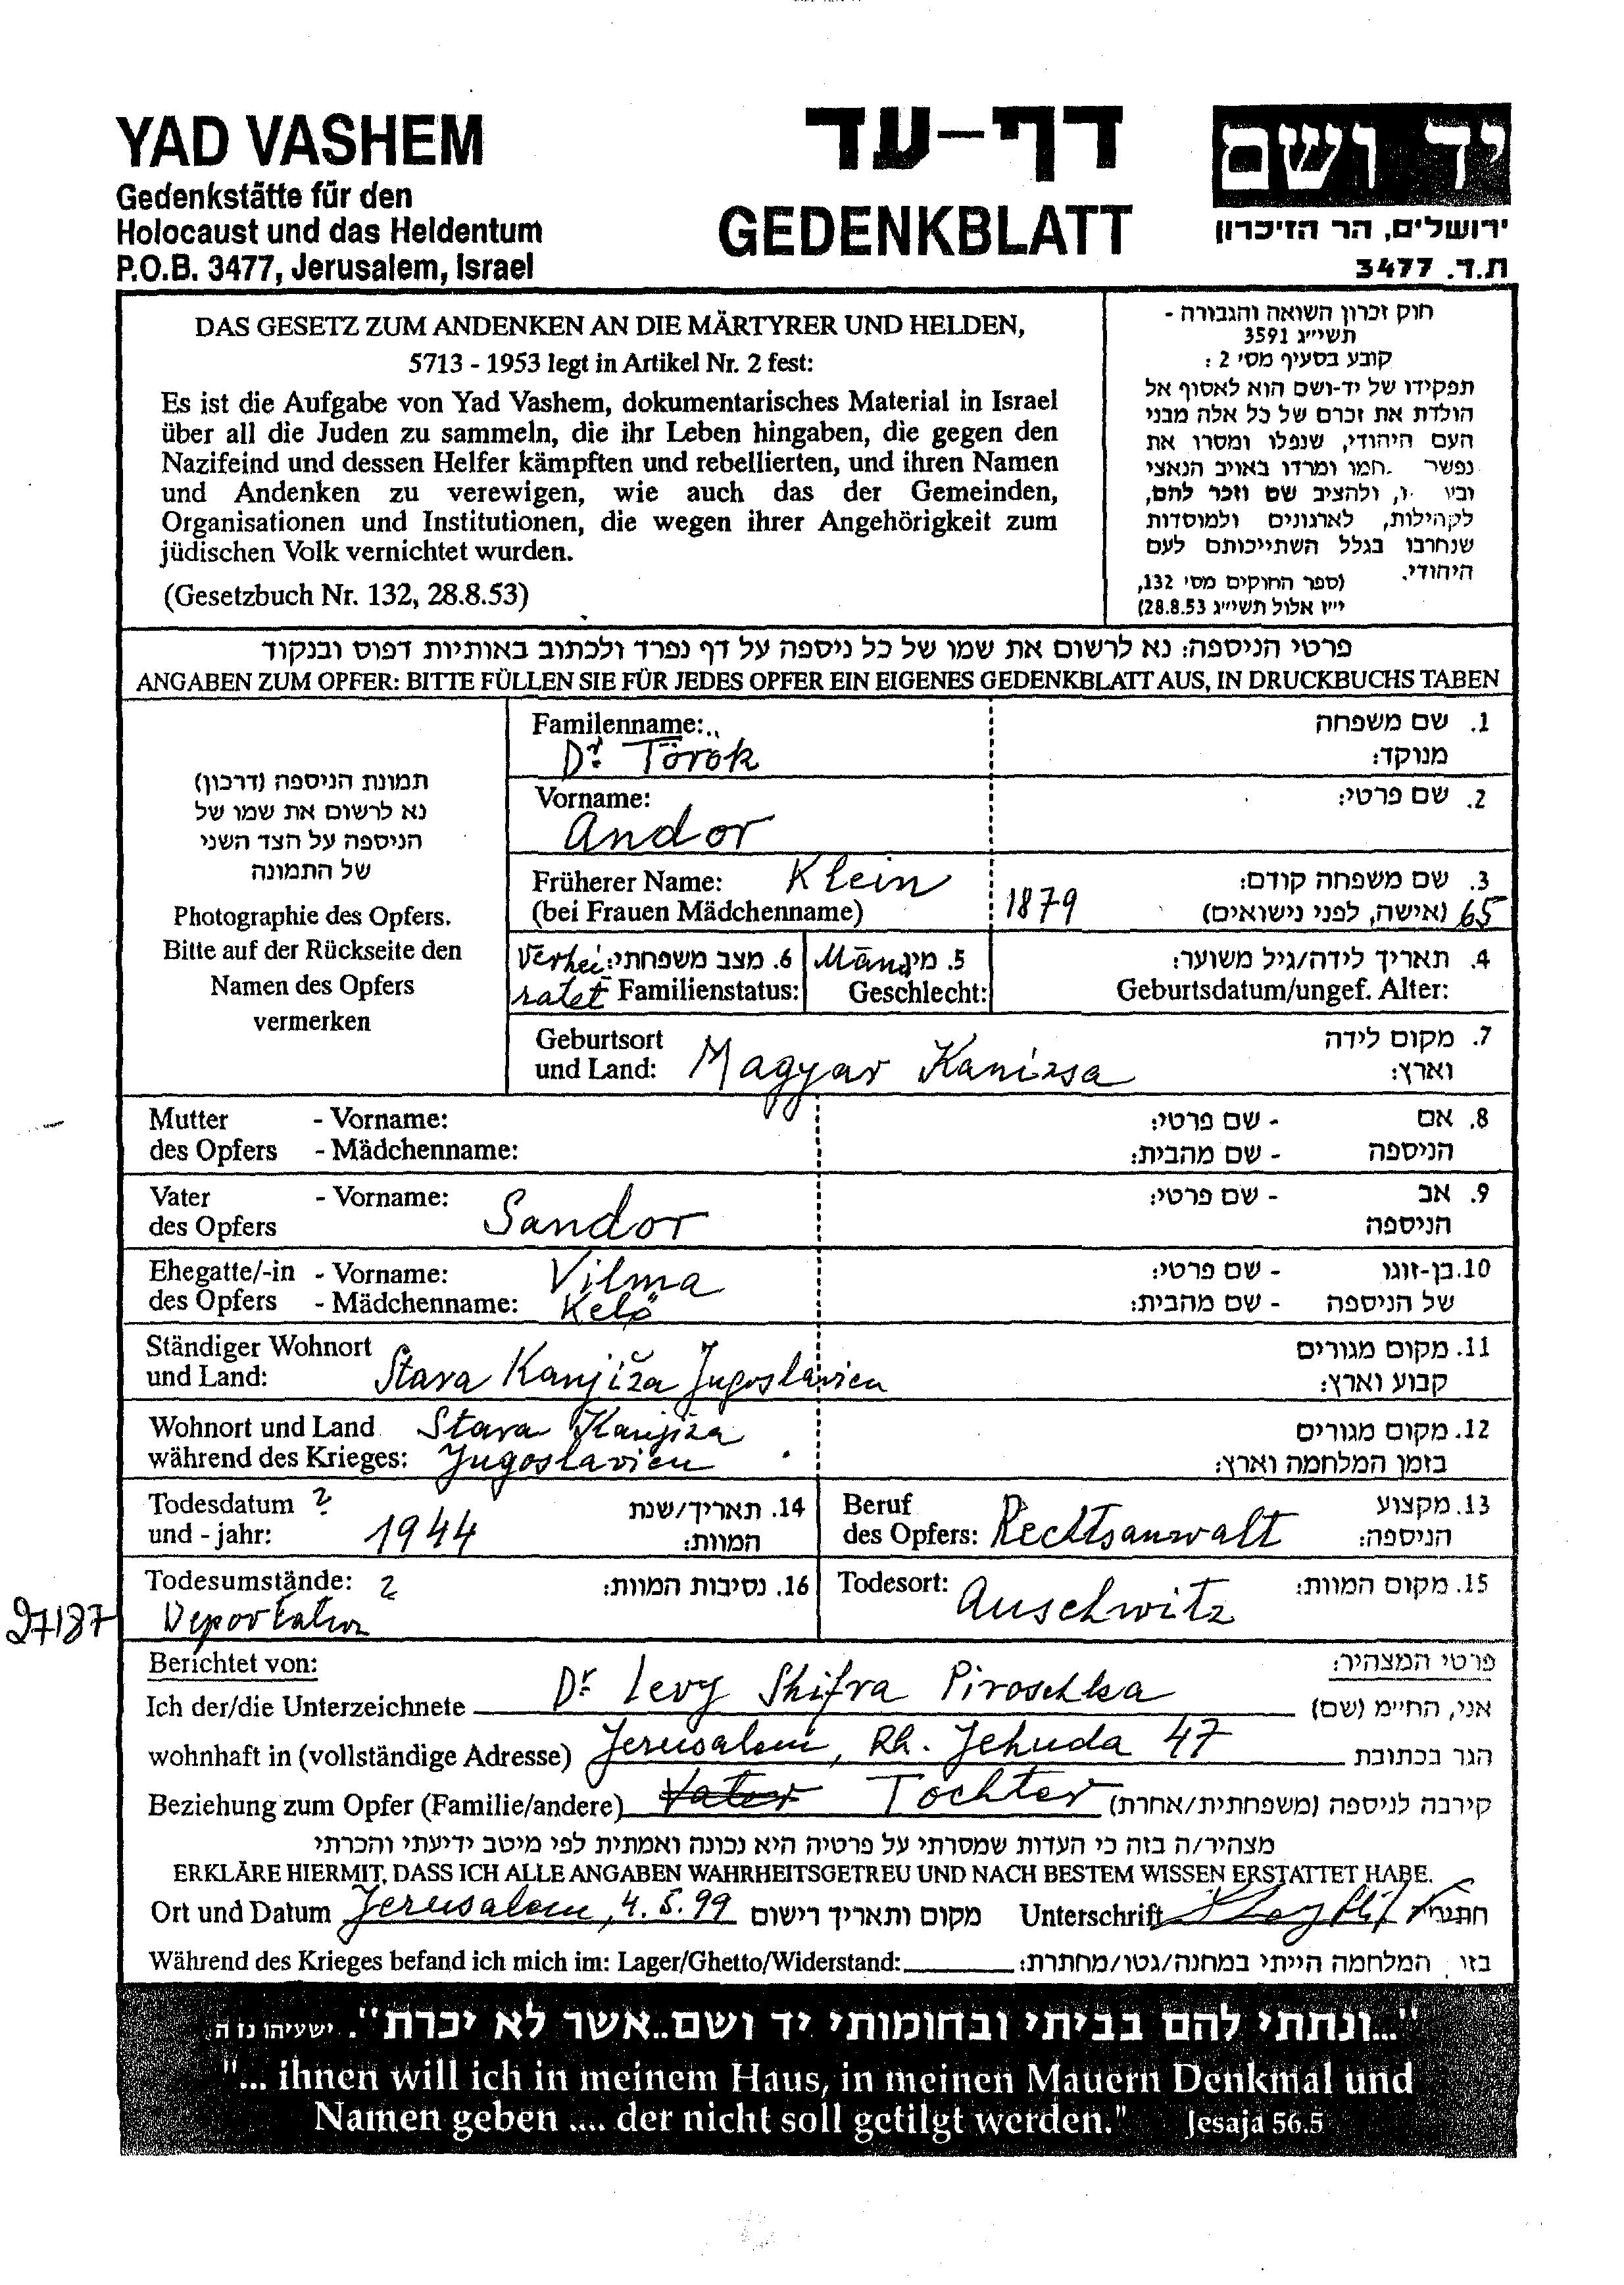 YAD VASHEM
Gedenkstätte für den
Holocaust und das Heldentum
P.O.B. 3477, Jerusalem, Israel
דף-עד
GEDENKBLATT
יד ושם
ירושלים, הר הזיכרון
ת.ד. 3477
DAS GESETZ ZUM ANDENKEN AN DIE MÄRTYRER UND HELDEN,
5713 - 1953 legt in Artikel Nr. 2 fest:
Es ist die Aufgabe von Yad Vashem, dokumentarisches Material in Israel
über all die Juden zu sammeln, die ihr Leben hingaben, die gegen den
Nazifeind und dessen Helfer kämpften und rebellierten, und ihren Namen
und Andenken zu verewigen, wie auch das der Gemeinden,
Organisationen und Institutionen, die wegen ihrer Angehörigkeit zum
jüdischen Volk vernichtet wurden.
(Gesetzbuch Nr. 132, 28.8.53)
חוק זכרון השואה והגבורה -
תשי״ג 3591
קובע בסעיף מס׳ 2 :
תפקידו של יד-ושם הוא לאסוף אל
הולדת את זכרם של כל אלה מבני
העם היהודי, שנפלו ומסרו את
נפשר .חמו ומרדו באויב הנאצי
ולהציב שם וזכר להם,
לקהילות, לארגונים ולמוסדות
שנחרבו בגלל השתייכותם לעם
היהודי. (ספר החוקים מס׳ 132,
י״ז אלול תשי״ג 28.8.53)
פרטי הניספה: נא לרשום את שמו של כל ניספה על דף נפרד ולכתוב באותיות דפוס ובנקוד
ANGABEN ZUM OPFER: BITTE FÜLLEN SIE FÜR JEDES OPFER EIN EIGENES GEDENKBLATT AUS, IN DRUCKBUCHSTABEN
תמונת הניספה (דרכון)
נא לרשום את שמו של
הניספה על הצד השני
של התמונה
Photographie des Opfers.
Bitte auf der Rückseite den
Namen des Opfers
vermerken
Familenname: 1. שם משפחה
Dr. Török מנוקד:
Vorname: 2. שם פרטי:
Andor
Früherer Name: Klein 3. שם משפחה קודם:
(bei Frauen Mädchenname) 1879 (אישה, לפני נישואים) 65
Verhei 6. מצב משפחתי: Mann 5. מין 4. תאריך לידה/גיל משוער:
ratet Familienstatus: Geschlecht: Geburtsdatum/ungef. Alter:
Geburtsort 7. מקום לידה
und Land: Magyar Kanizsa וארץ:
Mutter - Vorname: - שם פרטי: 8. אם
des Opfers - Mädchenname: - שם מהבית: הניספה
Vater - Vorname: Sandor - שם פרטי: 9. אב
des Opfers הניספה
Ehegatte/-in - Vorname: Vilma - שם פרטי: 10. בן-זוגו
des Opfers - Mädchenname: - שם מהבית: של הניספה
Ständiger Wohnort 11. מקום מגורים
und Land: Stara Kanjiža Jugoslavien קבוע וארץ:
Wohnort und Land Stara Kanjiža 12. מקום מגורים
während des Krieges: Jugoslavien בזמן המלחמה וארץ:
Todesdatum ? 14. תאריך/שנת
und - jahr: 1944 המוות:
Beruf 13. מקצוע
des Opfers: Rechtsanwalt הניספה:
Todesumstände: ? 16. נסיבות המוות:
Deportation
Todesort: Auschwitz 15. מקום המוות:
27187
Berichtet von: פרטי המצהיר:
Ich der/die Unterzeichnete Dr. Levy Shifra Piroschka אני, החיימ (שם)
wohnhaft in (vollständige Adresse) Jerusalem, Rh. Jehuda 47 הגר בכתובת
Beziehung zum Opfer (Familie/andere) Vater Tochter קירבה לניספה (משפחתית/אחרת)
מצהיר/ה בזה כי העדות שמסרתי על פרטיה היא נכונה ואמתית לפי מיטב ידיעתי והכרתי
ERKLÄRE HIERMIT, DASS ICH ALLE ANGABEN WAHRHEITSGETREU UND NACH BESTEM WISSEN ERSTATTET HABE.
Ort und Datum Jerusalem, 4.5.99 מקום ותאריך רישום Unterschrift
Während des Krieges befand ich mich im: Lager/Ghetto/Widerstand: המלחמה הייתי במחנה/גטו/מחתרת:
"...ונתתי להם בביתי ובחומותי יד ושם..אשר לא יכרת". ישעיהו נו ה
"... ihnen will ich in meinem Haus, in meinen Mauern Denkmal und
Namen geben .... der nicht soll getilgt werden." Jesaja 56.5